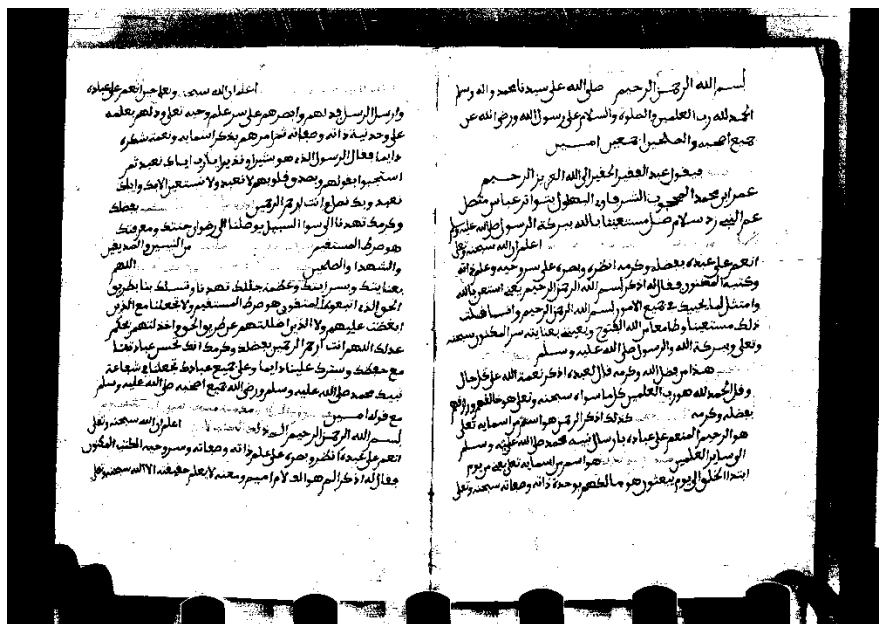 بسم الله الرحمن الرحيم صلى الله على سيدنا محمد واله وسلم
الحمد لله رب العلمين والصلوة والسلام على رسول الله ورضي الله عن
جميع اصحبه والصلحين اجمعين امين
فيقول عبد الفقير الحقير الى الله العزيز الرحيم
عمر ابن محمد المحجوب
مستعينا بالله ببركة الرسول صلى الله عليه وسلم
اعلم ان الله سبحنه وتعلى
انعم على عبده بفضله وكرمه انظره وبصره على سر وحيه وعلم ذاته
وكتبه المكنون فقال له اذكر بسم الله الرحمن الرحيم يعني استعن بالله
وامتثل في جميع الامور بسم الله الرحمن الرحيم
ذلك مستعينا سر المكنون سبحنه
وتعلى وببركة الله والرسول صلى الله عليه وسلم
هذا من فضل الله وكرمه قال لعبده اذكر نعمة الله على كل حال
وقل الحمد لله هو رب العلمين كل ما سواه سبحنه وتعلى هو خالقهم ورازقهم
بفضله وكرمه كذلك اذكر الرحمن هو اسم من اسمايه تعلى
هو الرحيم المنعم على عباده بارسال نبيه محمد صلى الله عليه وسلم
الى ساير العلمين هو اسم من اسمايه تعلى يعني من يوم
ابتدا الخلق الى يوم يبعثون هو مالكهم بوحدة ذاته وصفاته سبحنه وتعلى
اعلم ان الله سبحنه وتعلى حين انعم على عباده
وارسل الرسل وابصرهم على سر علم وحيه تعلى ودلهم بعلمه
على وحدنية ذاته وصفاته ثم امرهم بذكر اسمايه ونعمة شكره
دايما فقال الرسول الذي هو بشيرا ونذيرا يا رب اياك نعبد ثم
استجبوا بقولهم وبصدق قلوبهم لا نعبد ولا نستعين الا بك واياك
نعبد وبك نصل وانت ارحم الرحمين بفضلك
وكرمك تهدنا الى سوا السبيل يوصلنا الى رضوان جنتك ومعرفتك
هو صرط المستقيم من النبيين والصديقين
والشهدا والصلحين اللهم
بعنايتك وبسر ايتك وعظمة جللك تهدنا وتسلك بنا بطريق
الحق الذي اتبعوك هو صرط المستقيم ولا تجعلنا مع الذين
اغضبت عليهم ولا الذين اضللتهم عن طريق الحق واخذلتهم بحكم
عدلك اللهم انت ارحم الرحمين بفضلك وكرمك
مع حفظك وسترك علينا دايما وعلى جميع عبادك تجعلنا في شفاعة
نبيك محمد صلى الله عليه وسلم ورضي الله جميع اصحبه صلى الله عليه وسلم
مع قوله امين
بسم الله الرحمن الرحيم اعلم ان الله سبحنه وتعلى
انعم على عبده انظر وبصره على علم ذاته وصفاته وسر وحيه الكتب المكنون
فقال له اذكر الم هو الف لام ميم ومعنه لا يعلم حقيقته الا الله سبحنه وتعلى